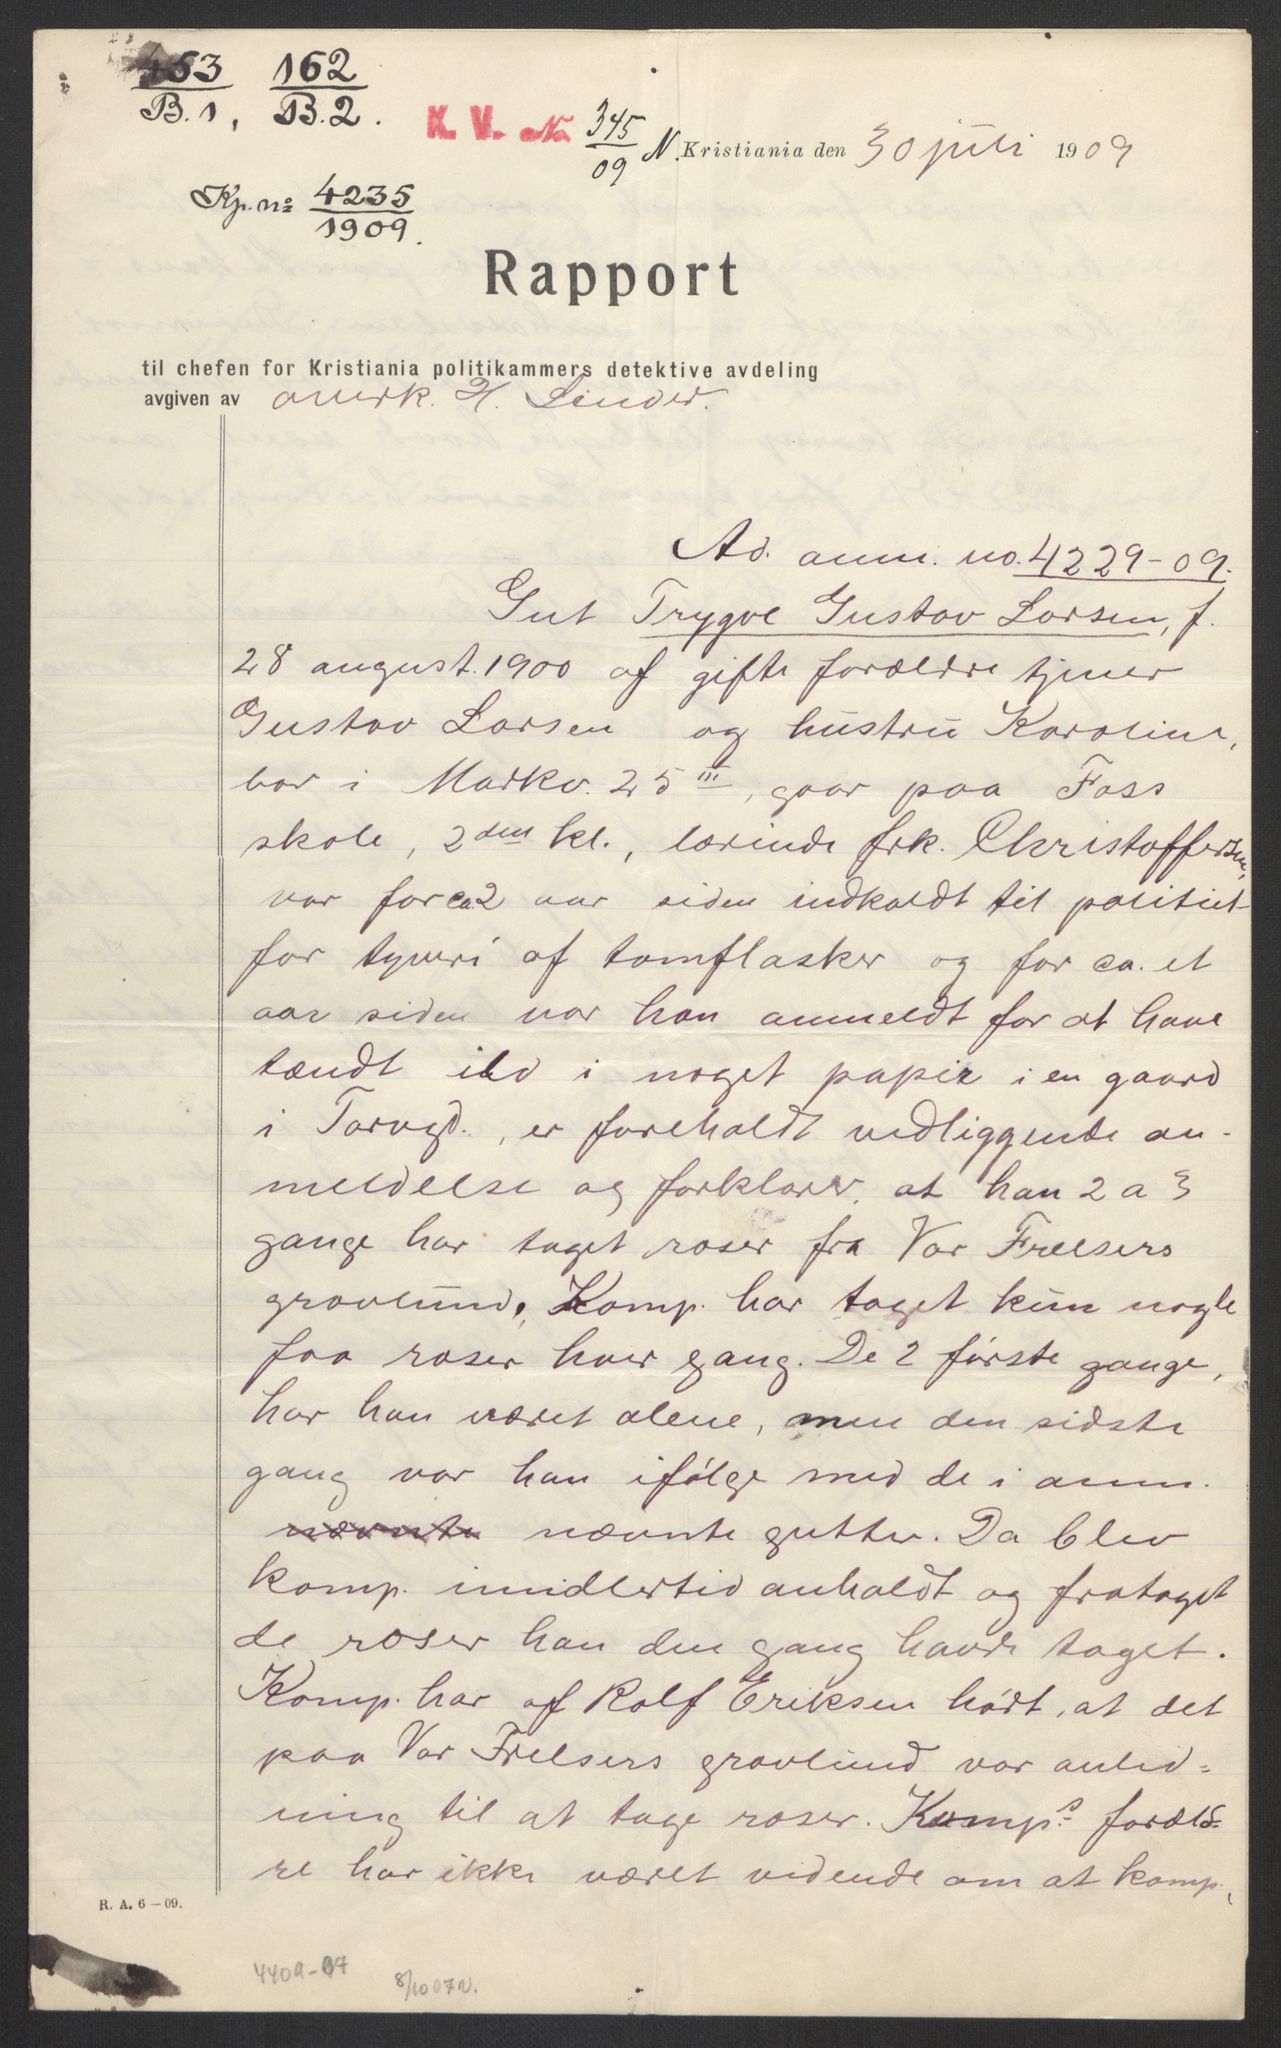 463 162
B.1, B.2.
K. V. No 345
09 N. Kristiania den 30 juli 1909
Kp. no 4235
1909.
Rapport
til chefen for Kristiania politikammers detektive avdeling
avgiven av overk. H. Linder.
Ad. anm. no. 4229-09.
Gut Trygve Gustav Larsen, f.
28 august. 1900 af gifte forældre tjener
Gustav Larsen og hustru Karoline,
bor i Markv. 25 III, gaar paa Foss
skole, 2den kl., lærinde frk. Christoffersen,
var for ca 2 aar siden indkaldt til politiet
for tyveri af tomflasker og for ca. et
aar siden var han anmeldt for at have
tændt ild i noget papir i en gaard
i Torvgd., er foreholdt vedliggende an-
meldelse og forklarer, at han 2 a 3
gange har taget roser fra Vor Frelsers
gravlund. Komp. har taget kun nogle
faa roser hver gang. De 2 første gange,
har han været alene, men den sidste
gang var han ifølge med de i anm.
nævnte nævnte gutter. Da blev
komp. imidlertid anholdt og frataget
de roser han den gang havde taget.
Komp. har af Rolf Eriksen hørt, at det
paa Vor Frelsers gravlund var anled=
ning til at tage roser. Komps. foræld=
re har ikke været vidende om at komp.,
R. A. 6 — 09.
4409-07 8/10 07 N.